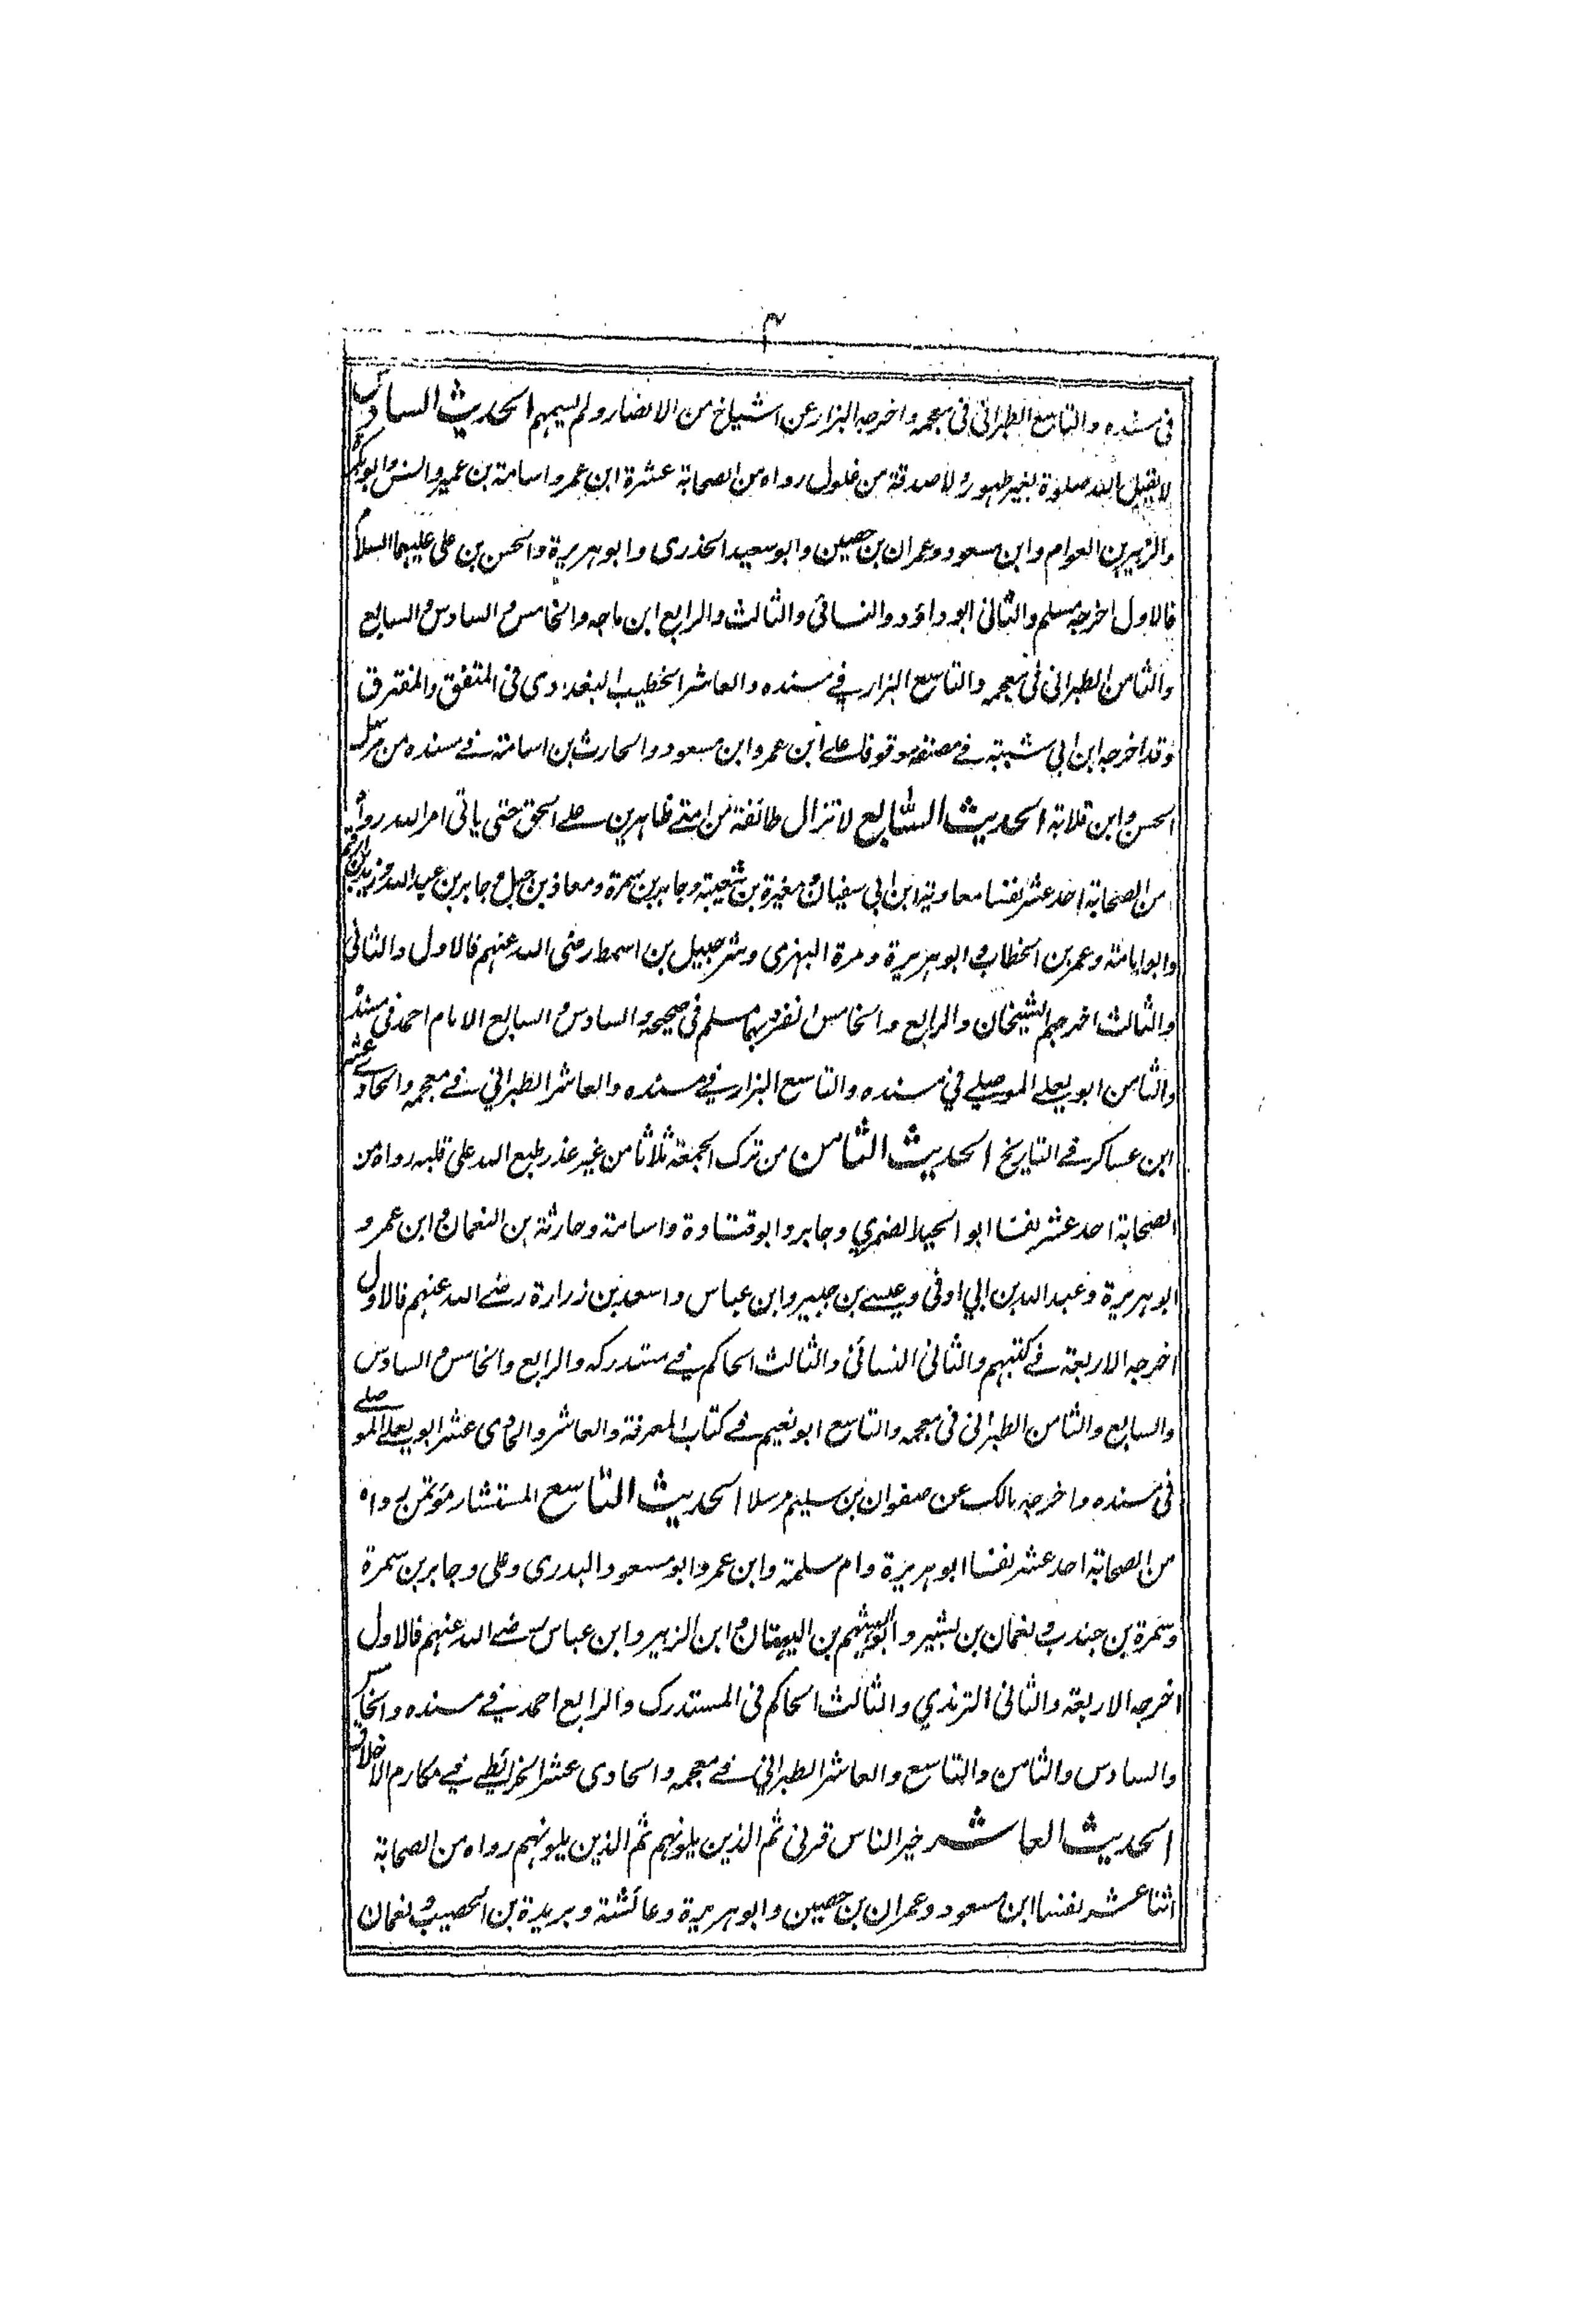 ۴
في مسنده والتاسع الطبراني في معجمه واخرجه البزار عن اشياخ من الانصار ولم يسمهم الحديث السادس
لا يقبل الله صلوة بغير طهور ولا صدقة من غلول رواه من الصحابة عشرة ابن عمر واسامة بن عمير وانس وابو بكرة
والزبير بن العوام وابن مسعود وعمران بن حصين وابو سعيد الخدرى وابو هريرة والحسن بن على عليهما السلام
فالاول اخرجه مسلم والثانى ابو داؤد والنسائى والثالث والرابع ابن ماجه والخامس والسادس والسابع
والثامن الطبرانى فى معجمه والتاسع البزار في مسنده والعاشر الخطيب البغدادى فى المتفق والمفترق
وقد اخرجه ابن ابي شيبة في مصنفه موقوفا على ابن عمر وابن مسعود والحارث بن اسامة في مسنده من مرسل
الحسن وابن قلابة الحديث السابع لا تزال طائفة من امتى ظاهرين على الحق حتى ياتى امر الله رواه
من الصحابة احد عشر نفسا معاوية ابن ابي سفيان ومغيرة بن شعبة وجابر بن سمرة ومعاذ بن جبل وجابر بن عبد الله وزيد بن ارقم
وابو امامة وعمر بن الخطاب وابو هريرة ومرة البهزى وشرحبيل بن السمط رضى الله عنهم فالاول والثانى
والثالث اخرجهم الشيخان والرابع والخامس انفرد بهما مسلم فى صحيحه والسادس والسابع الامام احمد فى مسنده
والثامن ابو يعلے الموصلے في مسنده والتاسع البزار في مسنده والعاشر الطبراني في معجمه والحادے عشر
ابن عساكر في التاريخ الحديث الثامن من ترك الجمعة ثلاثا من غير عذر طبع الله على قلبه رواه من
الصحابة احد عشر نفسا ابو الجعد الضمري وجابر وابو قتادة واسامة وحارثة بن النعمان وابن عمر و
ابو هريرة وعبد الله بن ابي اوفى وعيسے بن جبير وابن عباس واسعد بن زرارة رضے الله عنهم فالاول
اخرجه الاربعة في كتبهم والثانى النسائى والثالث الحاكم في مستدركه والرابع والخامس والسادس
والسابع والثامن الطبرانى فى معجمه والتاسع ابو نعيم في كتاب المعرفة والعاشر والحادى عشر ابو يعلے الموصلے
فى مسنده واخرجه مالك عن صفوان بن سليم مرسلا الحديث التاسع المستشار مؤتمن رواه
من الصحابة احد عشر نفسا ابو هريرة وام سلمة وابن عمر وابو مسعود البدرى وعلى وجابر بن سمرة
وسمرة بن جندب ونعمان بن بشير وابو الهيثم بن التيهان وابن الزبير وابن عباس رضے الله عنهم فالاول
اخرجه الاربعة والثانى الترمذي والثالث الحاكم فى المستدرك والرابع احمد في مسنده والخامس
والسادس والثامن والتاسع والعاشر الطبراني في معجمه والحادى عشر الخرائطے في مكارم الاخلاق
الحديث العاشر خير الناس قرنى ثم الذين يلونهم ثم الذين يلونهم رواه من الصحابة
اثنا عشر نفسا ابن مسعود وعمران بن حصين وابو هريرة وعائشة وبريدة بن الحصيب ونعمان